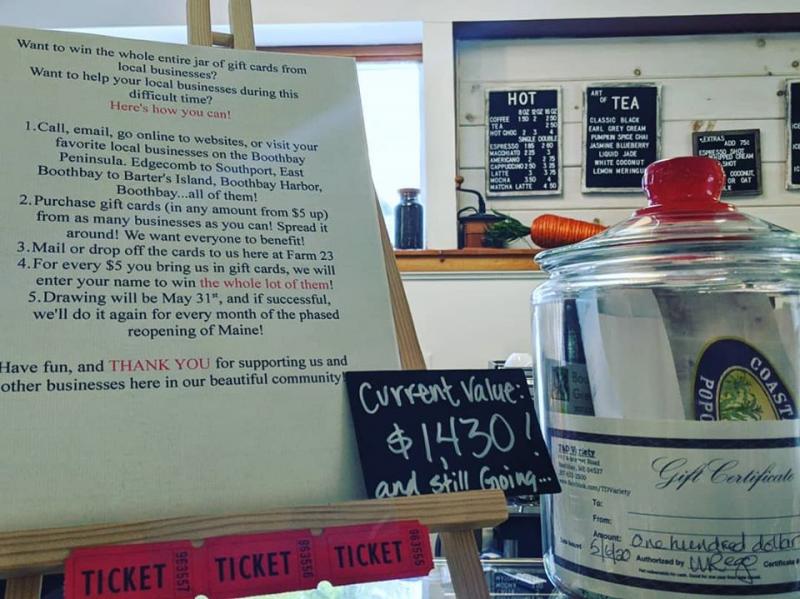 Want to win the whole entire jar of gift cards from
local businesses?
Want to help your local businesses during this
difficult time?
Here's how you can!
1.Call, email, go online to websites, or visit your
favorite local businesses on the Boothbay
Peninsula. Edgecomb to Southport, East
Boothbay to Barter's Island, Boothbay Harbor,
Boothbay...all of them!
2.Purchase gift cards (in any amount from $5 up)
from as many businesses as you can! Spread it
around! We want everyone to benefit!
3.Mail or drop off the cards to us here at Farm 23
4.For every $5 you bring us in gift cards, we will
enter your name to win the whole lot of them!
5.Drawing will be May 31st, and if successful,
we'll do it again for every month of the phased
reopening of Maine!
Have fun, and THANK YOU for supporting us and
other businesses here in our beautiful community!
Current Value:
$1,430!
and still Going...
TICKET 963557
TICKET 963556
TICKET 963555
HOT
8OZ 12OZ 16OZ
COFFEE 150 2 250
TEA 250
HOT CHOC 2 3 4
SINGLE DOUBLE
ESPRESSO 185 260
MACCHIATO 225 3
AMERICANO 2 275
CAPPUCCINO 250 325
LATTE 3 375
MOCHA 350 4
MATCHA LATTE 4 50
ART
OF TEA
CLASSIC BLACK
EARL GREY CREAM
PUMPKIN SPICE CHAI
JASMINE BLUEBERRY
LIQUID JADE
WHITE COCONUT
LEMON MERINGU
EXTRAS
ADD 75¢
ESPRESSO SHOT
WHIPPED CREAM
SHOT
COCONUT,
OR OAT
COAST
POPO
Gift Certificate
To:
From:
Amount: One hundred dollar
5/6/20 Authorized by
Certificate #